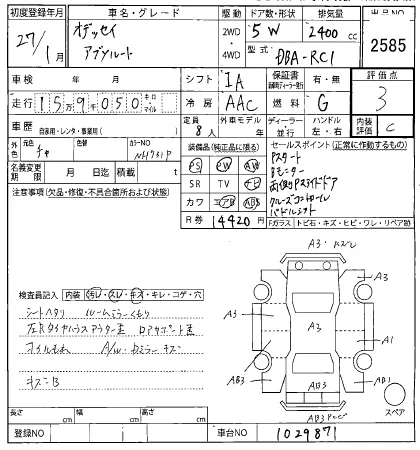 初度登録年月 車名・グレード 駆動 ドア数・形状 排気量 出品NO
27/1月 オデッセイ アブソルート 2WD 4WD 5W 2400cc 2585
型式 DBA-RC1
車検 年 月 シフト IA 保証書 有・無 評価点
走行 159050 キロ・マイル 冷房 AAC 燃料 G 3
車歴 自家用・レンタ・事業用( ) 定員 8人 外車モデル 年 ディーラー・並行 ハンドル 左・右 内装評価 C
元色 色替 カラーNO NH731P
装備品(純正品に限る) セールスポイント(正常に動作するもの)
名義変更期限 月 日迄 積載 t
PS PW AW
SR TV ナビ
カワ エアB ABS
R券 14420円
Pスタート
Bモニター
両側Pスライドドア
クルーズコントロール
パドルシフト
注意事項(欠品・修復・不具合箇所および状態)
Fガラス トビ石・キズ・ヒビ・ワレ・リペア跡
検査員記入 内装 汚レ・スレ・キズ・キレ・コゲ・穴
シートヘタリ ルームミラーくもり
オイルもれ A/W・ドアミラーキズ
キズ::B
A3
A3
A3
A3
A3
A1
AB3
AB3
AB1
スペア
長さ cm 幅 cm 高さ cm
登録NO 車台NO 1029871